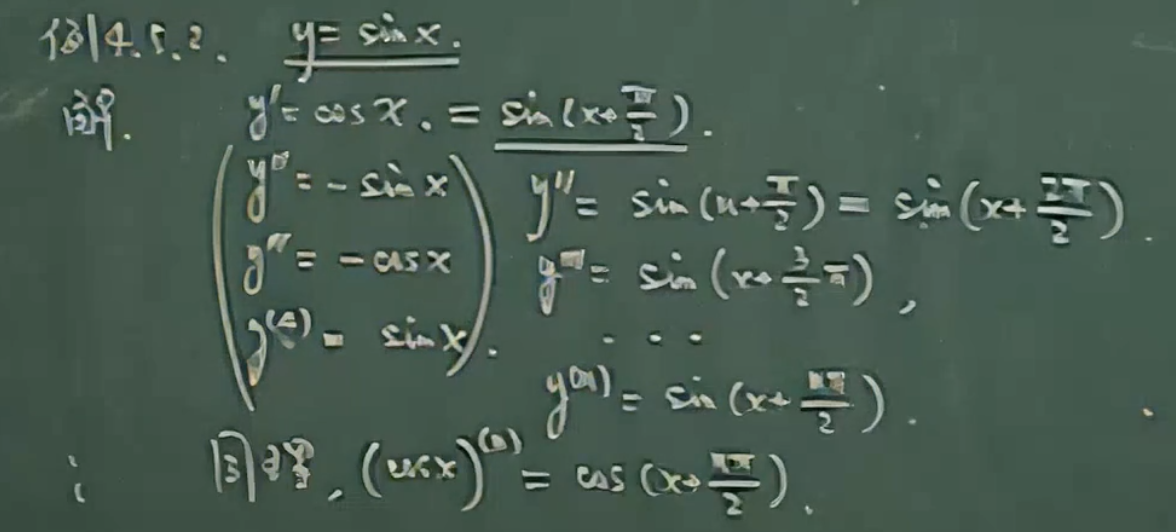 例4.5.2. y = sin x.
解. y' = cos x. = sin(x+π/2).
y'' = - sin x
y''' = - cos x
y⁽⁴⁾ = sin x.
y'' = sin(u+π/2) = sin(x+2π/2).
y''' = sin(x+3/2 π),
. . .
y⁽ⁿ⁾ = sin(x+nπ/2).
同理, (cos x)⁽ⁿ⁾ = cos(x+nπ/2).